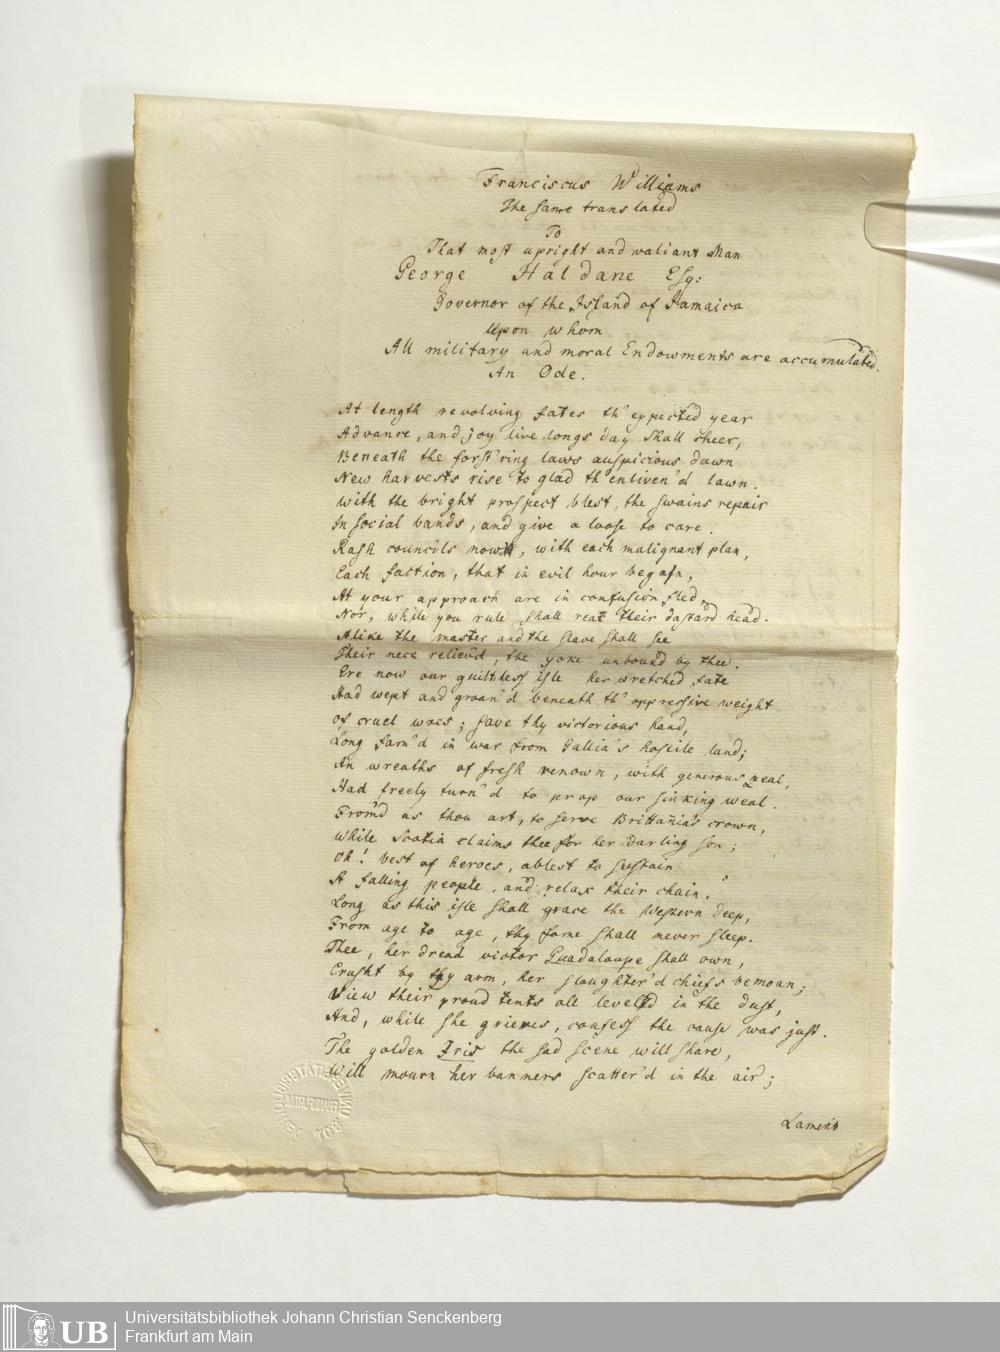 Franciscus Williams
The same translated
To
That most upright and valiant Man
George Haldane Esq:
Governor of the Island of Jamaica
Upon whom
All military and moral Endowments are accumulated.
An Ode.
At length revolving fates th' expected year
Advance, and joy live longs day shall cheer,
Beneath the forst'ring laws auspicious dawn
New harvests rise to glad th' enliven'd lawn.
With the bright prospect blest, the swains repair
In social bands, and give a loose to care.
Rash councils now, with each malignant plan,
Each faction, that in evil hour began,
At your approach are in confusion fled,
Nor, while you rule shall rear their dastard head.
Alike the master and the slave shall see
Their neck reliev'd, the yoke unbound by thee.
Ere now our guiltless isle her wretched fate
Had wept and groan'd beneath th' oppressive weight
of cruel woes; save thy victorious hand,
Long fam'd in war from Gallia's hostile land;
An wreaths of fresh renown, with generous zeal,
Had freely turn'd to prop our sinking weal.
From'd as thou art, to serve Brittania's crown,
While Scotia claims thee for her darling son;
Oh! best of heroes, ablest to sustain
A falling people, and relax their chain.
Long as this isle shall grace the Western deep,
From age to age, thy fame shall never sleep.
Thee, her dread victor Guadaloupe shall own,
Crusht by thy arm, her slaughter'd chiefs bemoan;
View their proud tents all level'd in the dust,
And, while she grieves, confess the cause was just.
The golden Iris the sad scene will share,
Will mourn her banners scatter'd in the air;
Lament
UB
Universitätsbibliothek Johann Christian Senckenberg
Frankfurt am Main